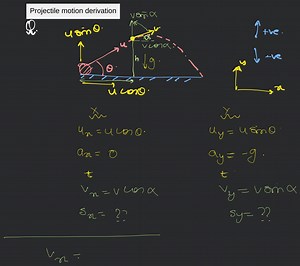 Projectile motion derivation
v sinα
u sinθ
u
v
α
v cosα
h
g
θ
u cosθ
+ve
-ve
y
x
X
u_x = u cosθ.
a_x = 0
t
v_x = v cosα
s_x = ??
v_x =
X
u_y = u sinθ.
a_y = -g.
t
v_y = v sinα
s_y = ??